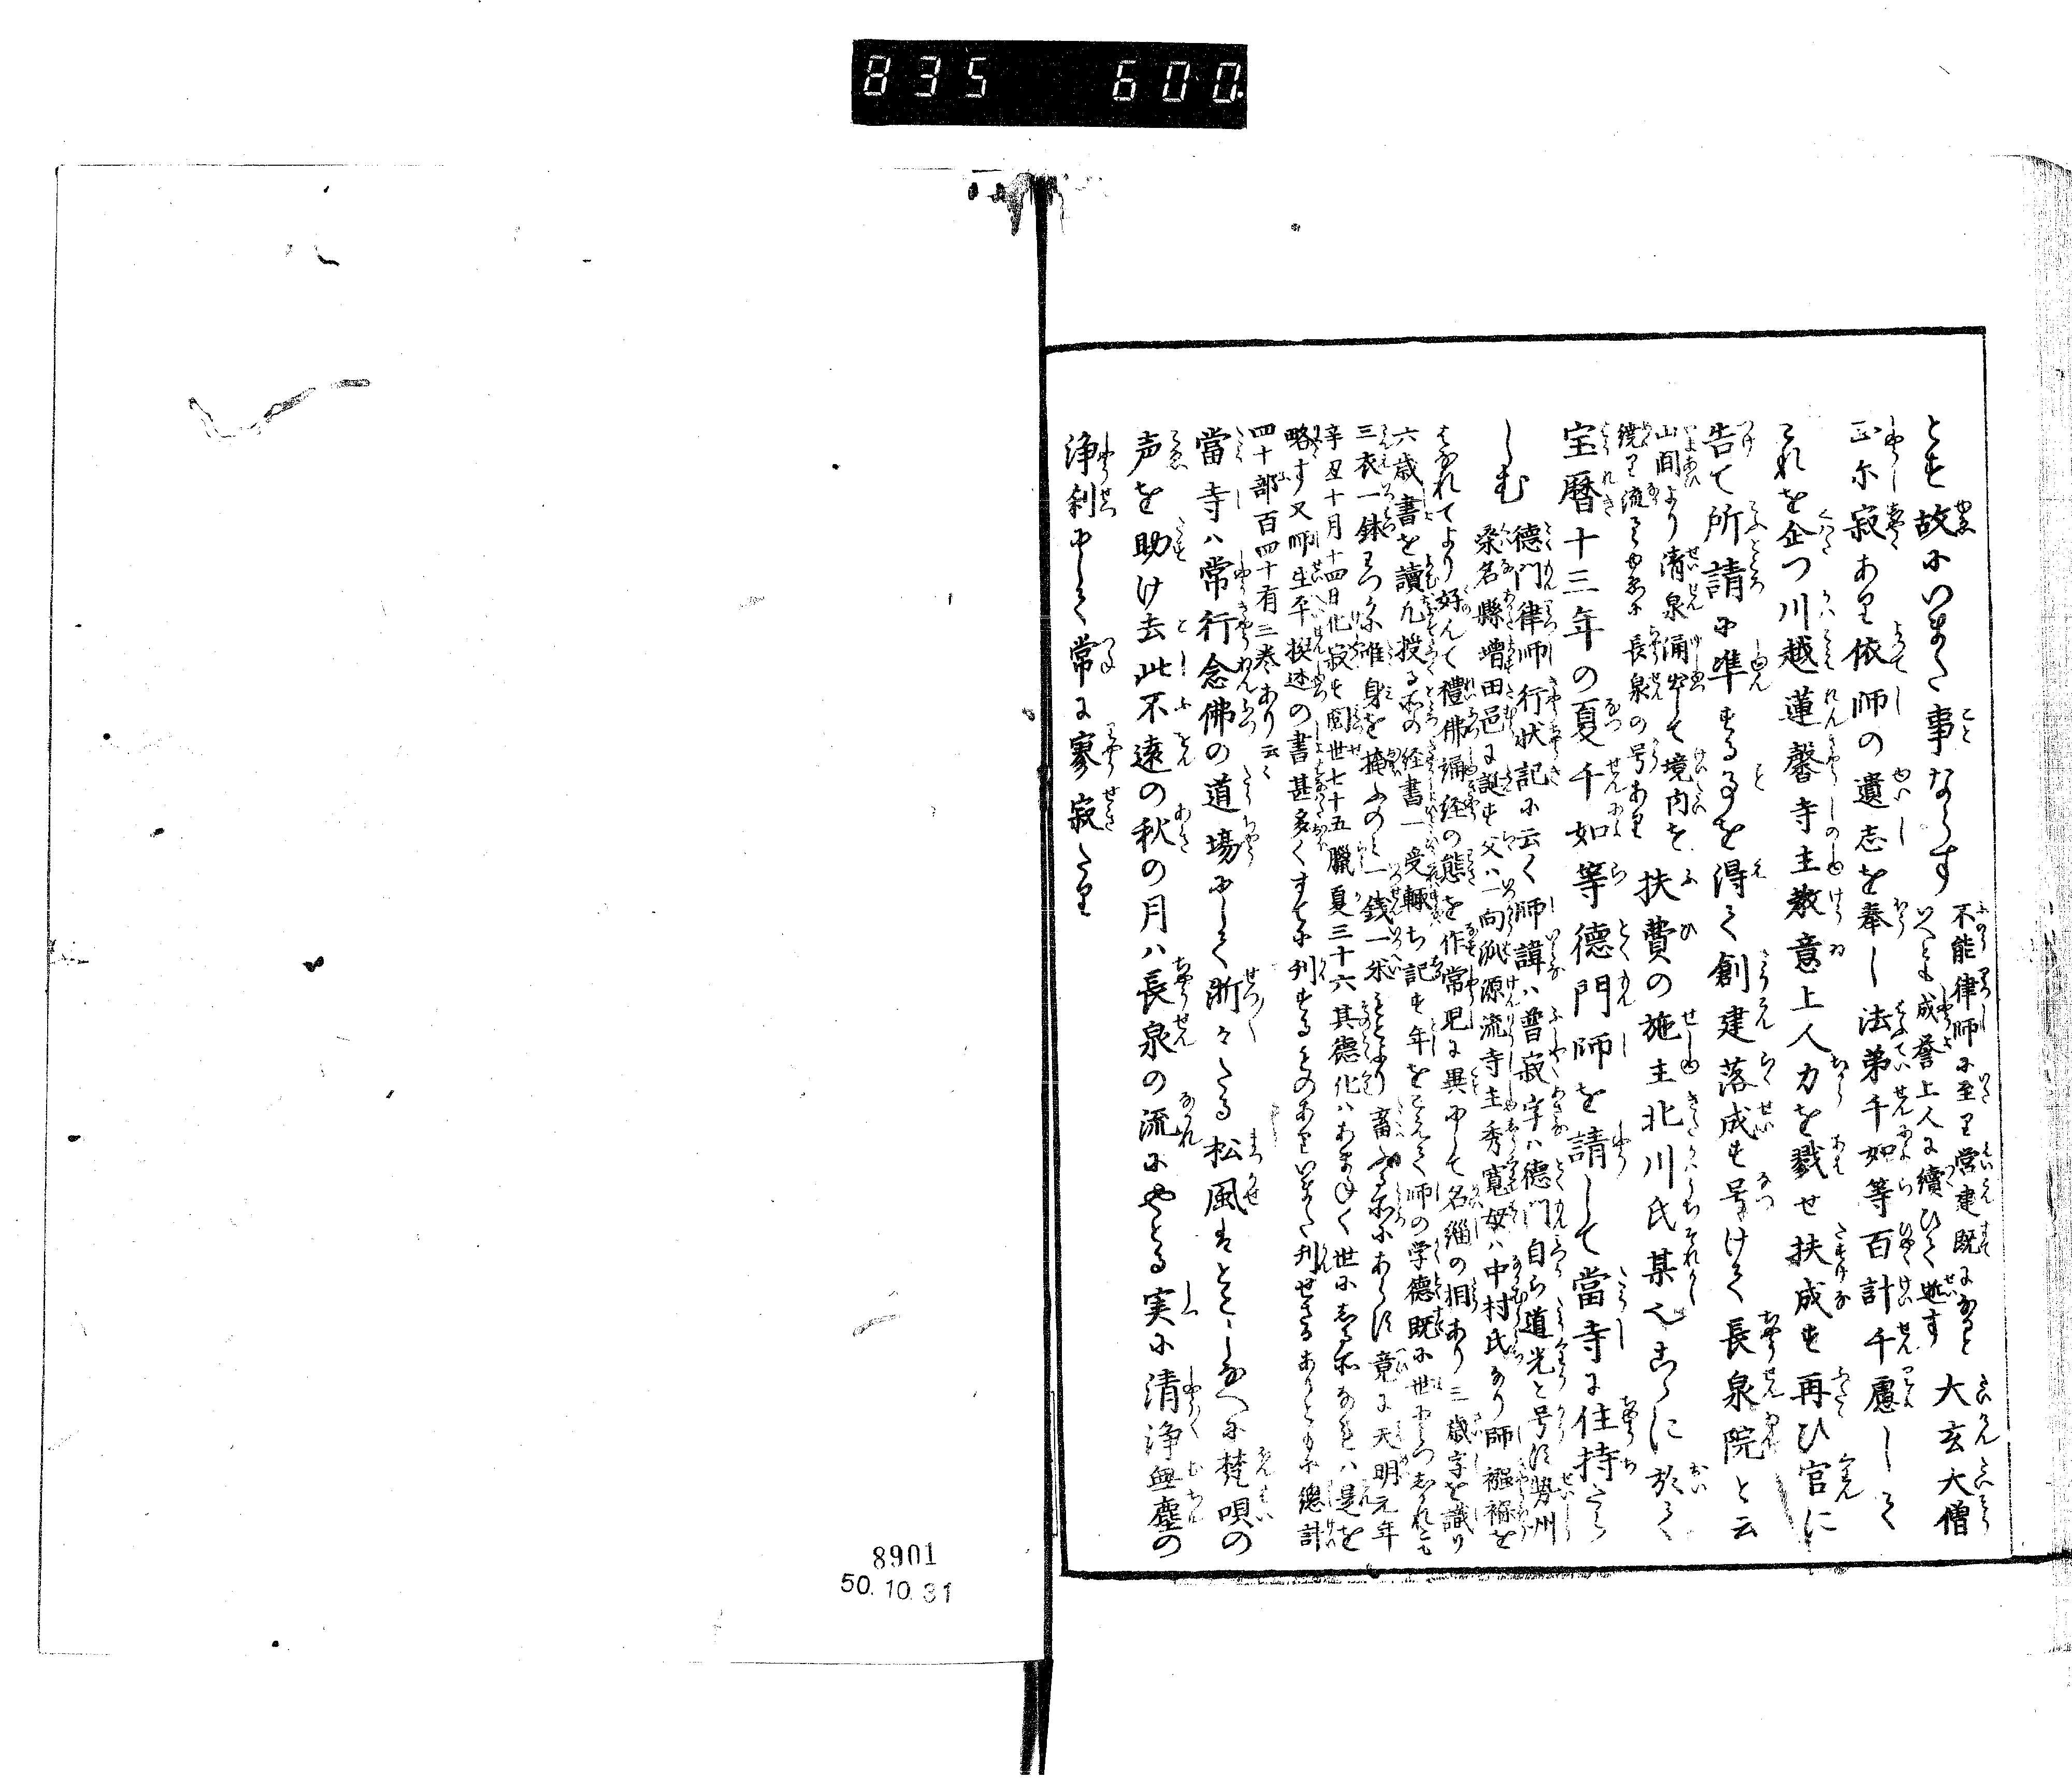 835 600
とも故にいまた事ならす
不能律師に至り営建既になると
いへとも成誉上人に續ひて逝す
大玄大僧
正尓寂あり依師の遺志を奉し法弟千如等百計千慮して
これを企つ川越蓮馨寺主教意上人力を戮せ扶成も再ひ官に
告て所請に準するを得て創建落成も号けて長泉院と云
山間より清泉涌出して境内を
繞り流る故に長泉の号あり
扶費の施主北川氏某也こゝに於て
宝暦十三年の夏千如等德門師を請して當寺に住持せ
しむ
德門律師行状記に云く師諱ハ普寂字ハ德門自ら道光と号す勢州
桒名縣増田邑に誕も父ハ一向派源流寺主秀寛母ハ中村氏なり師襁褓を
はなれてより好んて禮佛誦経の態を作常児に異にして名緇の相あり三歳字を識り
六歳書を讀凡授る所の経書一受輙ち記も年をこえて師の学德既に世に
三衣一鉢わつかに唯身を掩ふのミ一銭一米 畜ふる所にあらす竟に天明元年
辛丑十月十四日化寂も閲世七十五臘夏三十六其德化ハあまねく世にしる所なれハ是を
略す又師生平撰述の書甚多くすてに刊するものありいまた刊せさるありともに總計
四十部百四十有三巻あり云く
當寺ハ常行念佛の道場にして浙々たる松風はとこしなへに梵唄の
声を助け去此不遠の秋の月ハ長泉の流にやとる実に清浄無塵の
浄刹にして常に寥寂たり
8901
50.10.31